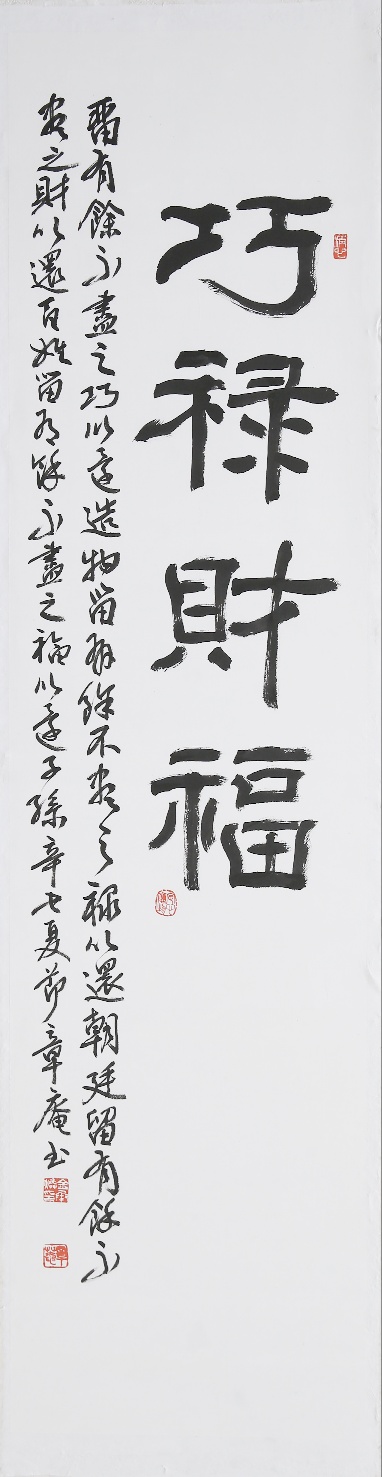 巧禄財福
留有餘不盡之巧以還造物留有餘不盡之祿以還朝廷留有餘不
盡之財以還百姓留有餘不盡之福以還子孫辛夏節章庵书